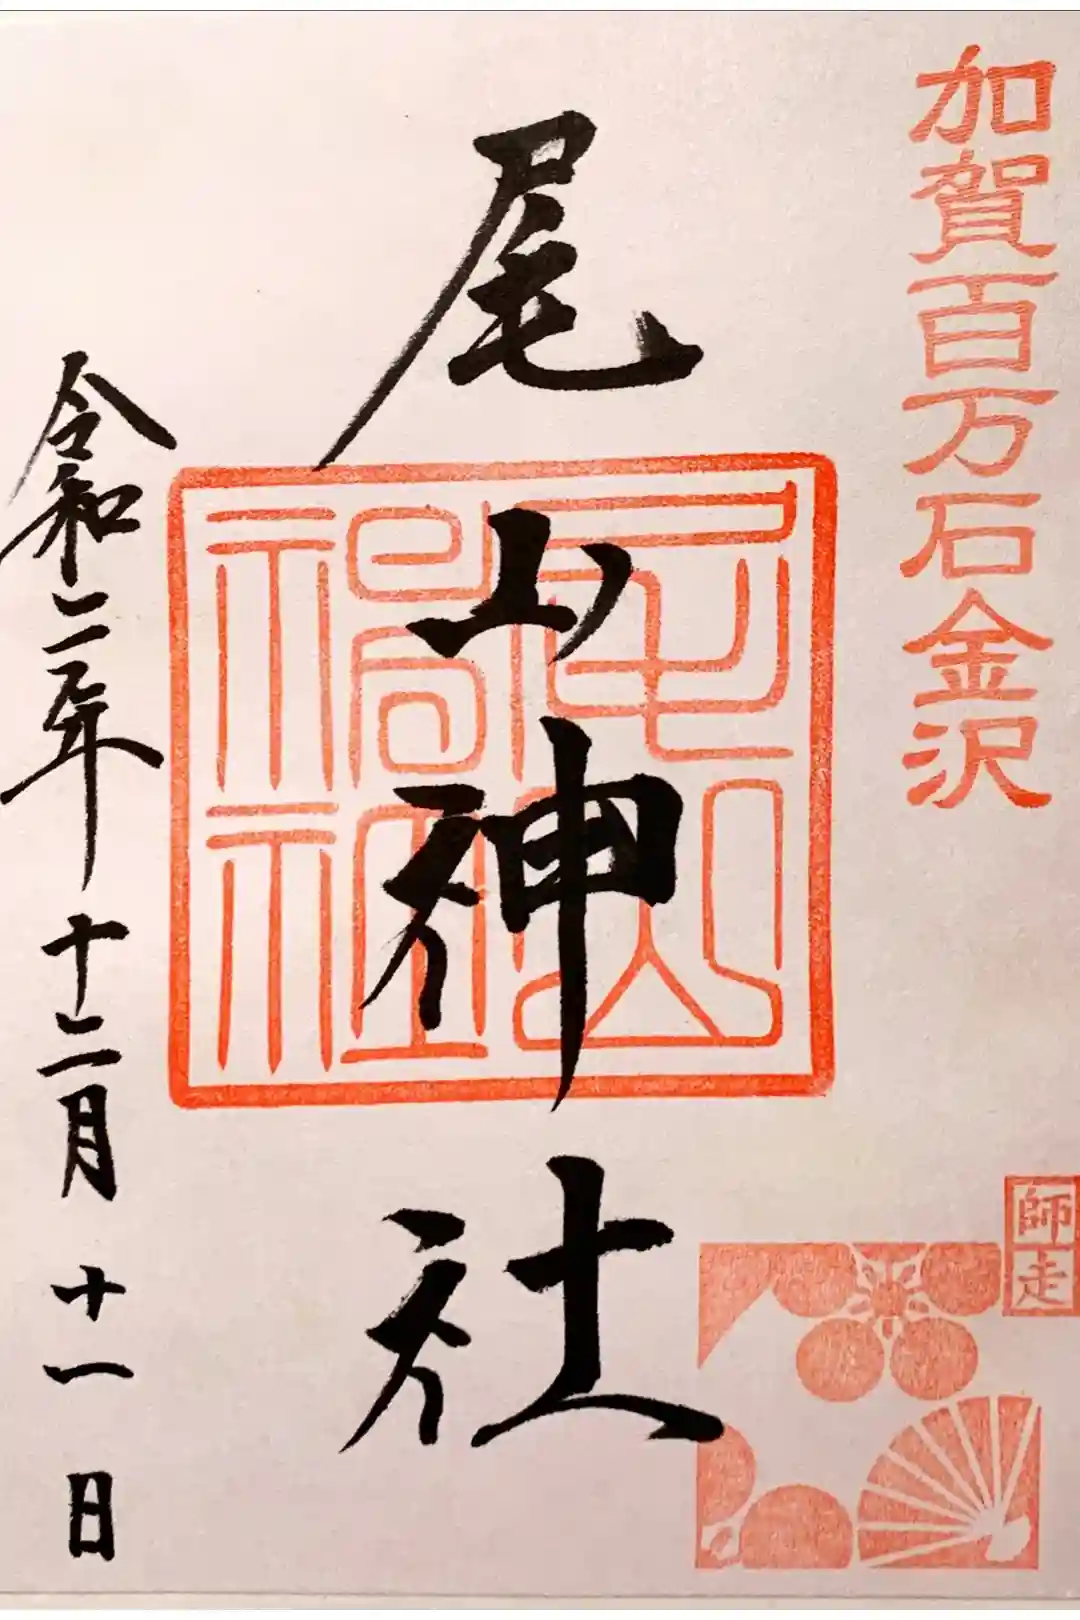 加賀百万石金沢
尾山神社
尾山神社
令和二年十二月十一日
師走